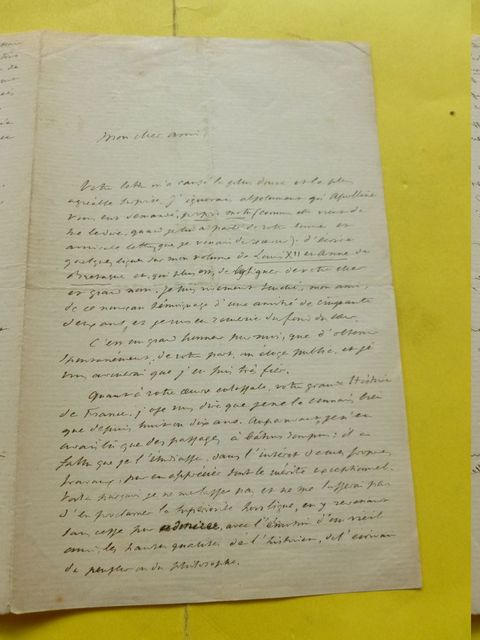 Mon cher ami,
Votre lettre m'a causé la plus douce et la plus
agréable surprise. J'ignorais absolument qu'Apolline
vous eut demandé, proprio motu (comme elle vient de
me le dire, quand je lui ai parlé de votre bonne et
amicale lettre, que je venais de recevoir), d'écrire
quelques lignes sur mon volume de Louis XII et Anne de
Bretagne et, qui plus est, de les signer de votre cher
et grand nom. Je suis vivement touché, mon ami,
de ce nouveau témoignage d'une amitié de cinquante
deux ans, et je vous en remercie du fond du cœur.
C'est un grand honneur pour moi, que d'obtenir
spontanément, de votre part, un éloge public, et je
vous avouerai que j'en suis très fier.
Quant à votre œuvre colossale, votre grande Histoire
de France, j'ose vous dire que je ne la connais bien
que depuis huit ou dix ans. Auparavant, je n'en
avais lu que des passages à bâtons rompus; il a
fallu que je l'étudiasse, dans l'intérêt de mes propres
travaux, pour en apprécier tout le mérite exceptionnel.
je ne me lasse pas et ne me lasserai pas
d'en proclamer la supériorité hors ligne, en y revenant
sans cesse pour admirer, avec l'émotion d'un vieil
ami, les hautes qualités de l'historien, de l'écrivain
du penseur ou du philosophe.